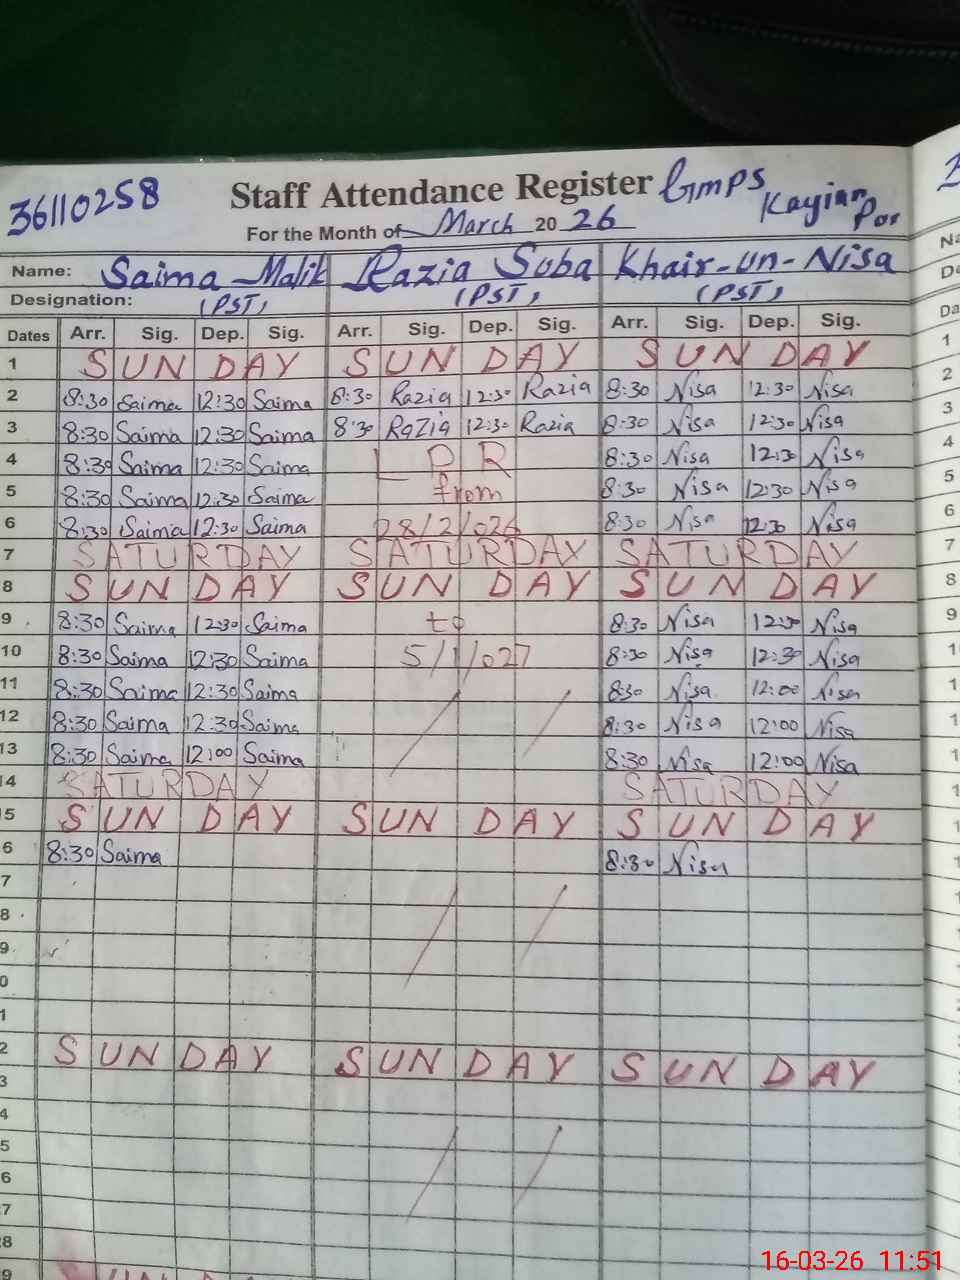 36110258 Staff Attendance Register GMPS
Kayian Por
For the Month of March 2026
Name: Saima Malik Razia Soba Khair-un-Nisa
Designation: (PST) (PST) (PST)
Dates Arr. Sig. Dep. Sig. Arr. Sig. Dep. Sig. Arr. Sig. Dep. Sig.
1 SUNDAY SUNDAY SUNDAY 1
2 8:30 Saima 12:30 Saima 8:30 Razia 12:30 Razia 8:30 Nisa 12:30 Nisa 2
3 8:30 Saima 12:30 Saima 8:30 Razia 12:30 Razia 8:30 Nisa 12:30 Nisa 3
4 8:30 Saima 12:30 Saima LPR 8:30 Nisa 12:30 Nisa 4
5 8:30 Saima 12:30 Saima from 8:30 Nisa 12:30 Nisa 5
6 8:30 Saima 12:30 Saima 28/2/026 8:30 Nisa 12:30 Nisa 6
7 SATURDAY SATURDAY SATURDAY 7
8 SUNDAY SUNDAY SUNDAY 8
9 8:30 Saima 12:30 Saima to 8:30 Nisa 12:30 Nisa 9
10 8:30 Saima 12:30 Saima 5/1/027 8:30 Nisa 12:30 Nisa 1
11 8:30 Saima 12:30 Saima 8:30 Nisa 12:00 Nisa 1
12 8:30 Saima 12:30 Saima 8:30 Nisa 12:00 Nisa 1
13 8:30 Saima 12:00 Saima 8:30 Nisa 12:00 Nisa 1
4 SATURDAY SATURDAY
5 SUNDAY SUNDAY SUNDAY
6 8:30 Saima 8:30 Nisa
7
8
9
0
1
2 SUNDAY SUNDAY SUNDAY
3
4
5
6
7
8
9
16-03-26 11:51